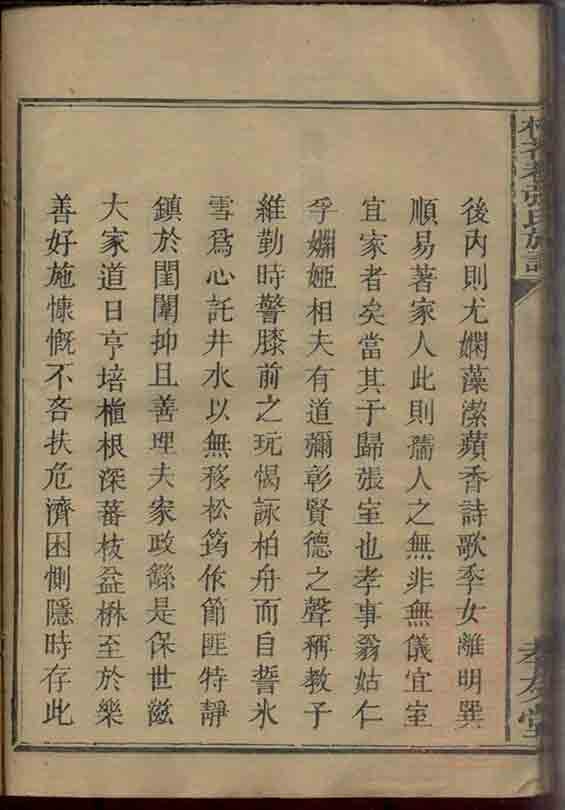 張氏族譜
孝友堂
後內則尤嫻藻潔蘋香詩歌季女離明巽
順易著家人此則孺人之無非無儀宜室
宜家者矣當其于歸張室也孝事翁姑仁
孚嫻婭相夫有道彌彰賢德之聲稱教子
維勤時警膝前之玩愒詠柏舟而自誓氷
雪爲心託井水以無移松筠作節匪特靜
鎮於閨闈抑且善理夫家政繇是保世滋
大家道日亨培植根深蕃枝益楙至於樂
善好施慷慨不吝扶危濟困惻隱時存此